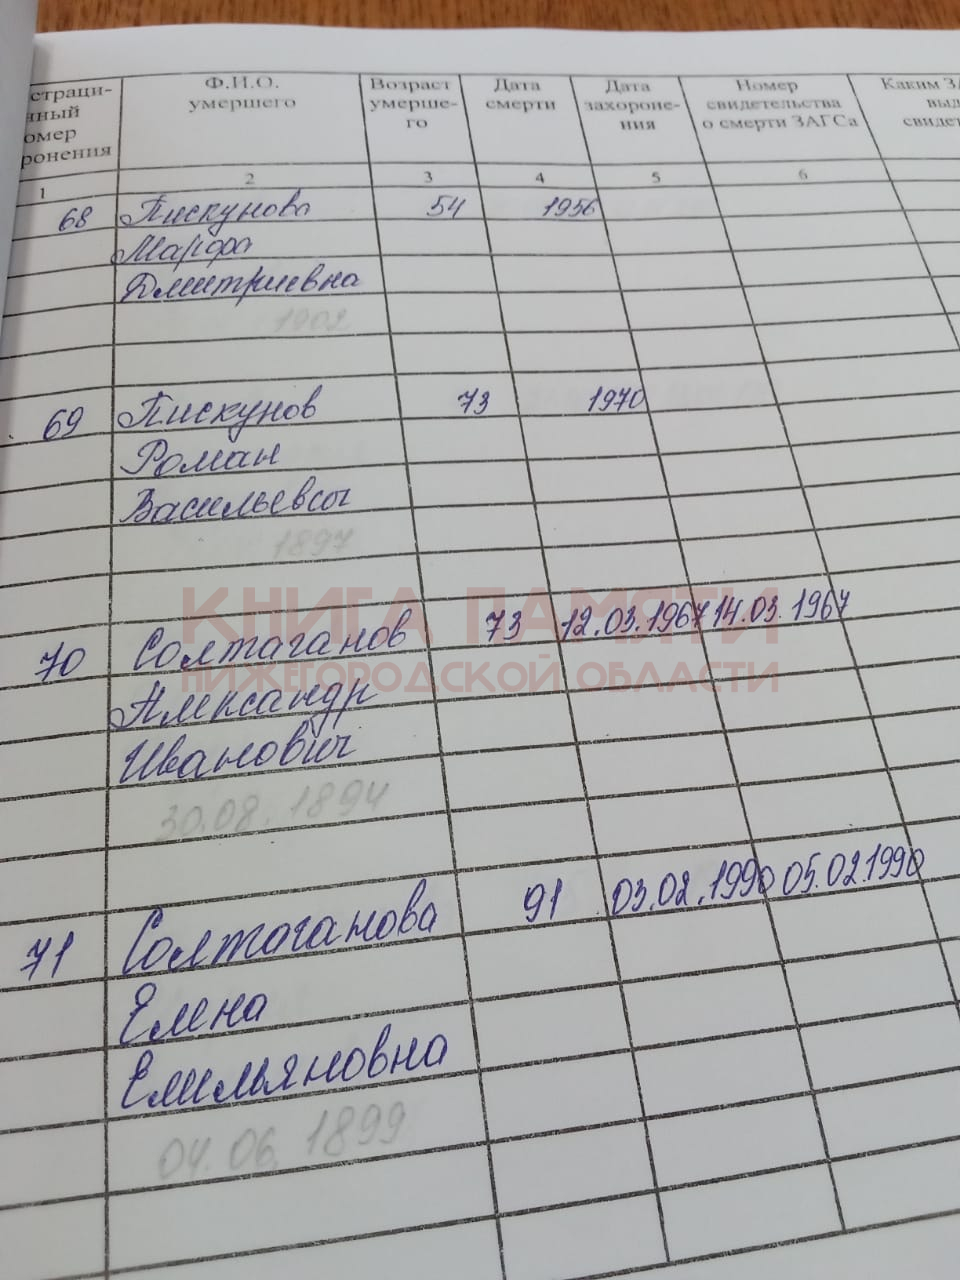 страци-
нный
омер
ронения
Ф.И.О.
умершего
Возраст
умерше-
го
Дата
смерти
Дата
захороне-
ния
Номер
свидетельства
о смерти ЗАГСа
Каким ЗА
выд
свидет
1 2 3 4 5 6
68 Пискунова 54 1956
Марфа
Дмитриевна
1902
69 Пискунов 73 1970
Роман
Васильевич
1897
КНИГА ПАМЯТИ
НИЖЕГОРОДСКОЙ ОБЛАСТИ
70 Солтаганов 73 12.03.1967 14.03.1967
Александр
Иванович
30.08.1894
71 Солтаганова 91 03.02.1990 05.02.1990
Елена
Емильяновна
04.06.1899